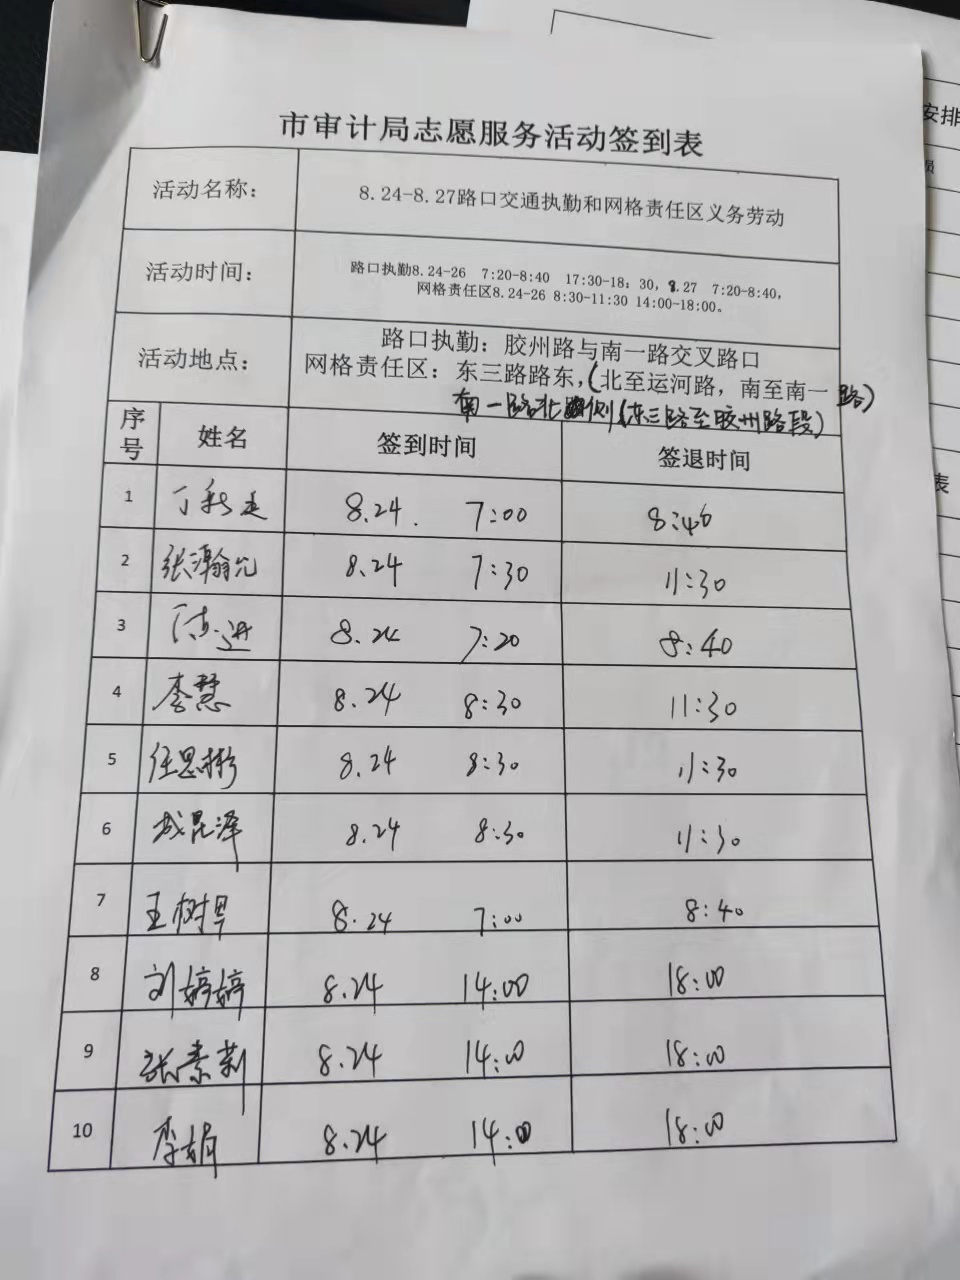 市审计局志愿服务活动签到表
活动名称： 8.24-8.27路口交通执勤和网格责任区义务劳动
活动时间： 路口执勤8.24-26 7:20-8:40 17:30-18：30，8.27 7:20-8:40，
网格责任区8.24-26 8:30-11:30 14:00-18:00。
活动地点： 路口执勤：胶州路与南一路交叉路口
网格责任区：东三路路东，（北至运河路，南至南一路）
南一路北侧（东三路至胶州路段）
序号 姓名 签到时间 签退时间
1 丁 8.24. 7:00 8:46
2 张瀚允 8.24 7:30 11:30
3 8.24 7:20 8:40
4 李慧 8.24 8:30 11:30
5 任思彬 8.24 8:30 11:30
6 昆泽 8.24 8:30 11:30
7 王树 8.24 7:00 8:40
8 刘婷婷 8.24 14:00 18:00
9 张素莉 8.24 14:00 18:00
10 李娟 8.24 14:00 18:00
安排
员
表